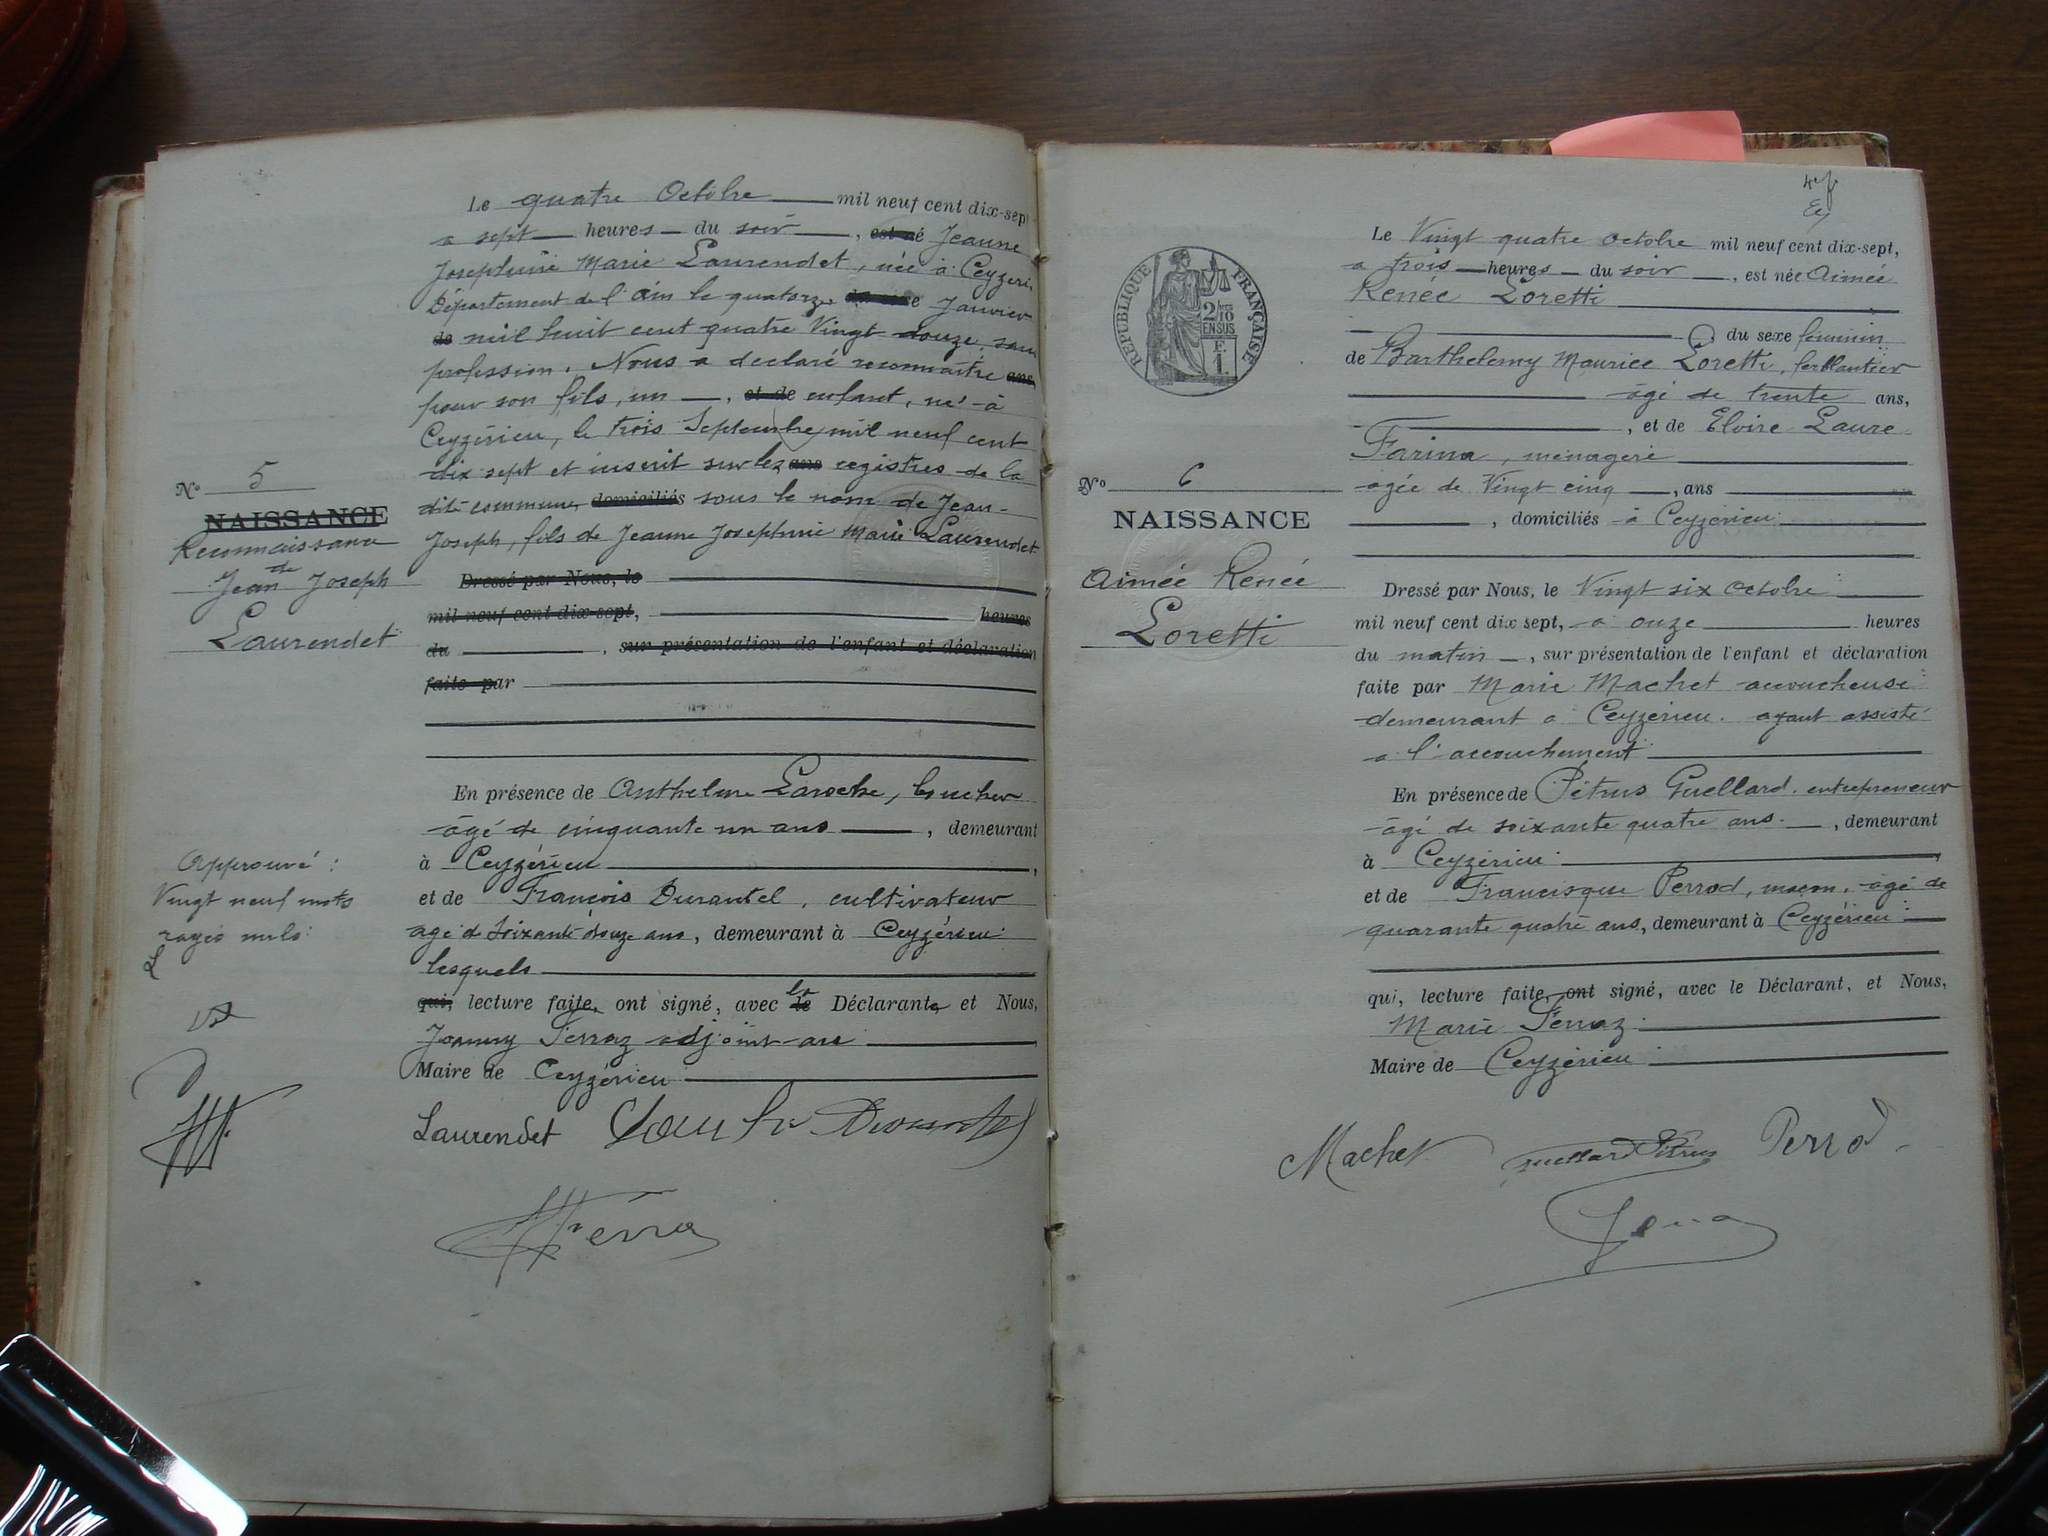 Le quatre Octobre mil neuf cent dix-sept
a sept heures du soir, est né Jeanne
Josephine Marie Laurendet, née à Ceyzeri
Département de l'Ain le quatorze Janvier
de mil huit cent quatre Vingt douze, sans
profession. Nous a déclaré reconnaitre ans
pour son fils, un, et de enfant, né à
Ceyzérieu, le trois Septembre mil neuf cent
dix sept et inscrit sur les ans registres de la
dite commune, domiciliés sous le nom de Jean-
Joseph, fils de Jeanne Josephine Marie Laurendet
Dressé par Nous, le
mil neuf cent dix-sept, heures
du, sur présentation de l'enfant et déclaration
faite par
En présence de Anthelme Laroche, boucher
âgé de cinquante un ans, demeurant
à Ceyzérieu,
et de François Durantel, cultivateur
agé de Soixante douze ans, demeurant à Ceyzérieu
lesquels
qui, lecture faite, ont signé, avec le la Déclarante et Nous,
Joanny Ferraz adjoint au
Maire de Ceyzérieu
Laurendet
Ferra
No 5
NAISSANCE
Reconnaissance
de
Jean Joseph
Laurendet
Approuvé :
Vingt neuf mots
rayés nuls
REPUBLIQUE FRANÇAISE
2/10
EN SUS
F.
1.
No 6
NAISSANCE
Aimée Renée
Loretti
Le Vingt quatre Octobre mil neuf cent dix-sept,
a trois heures du soir, est née Aimée
Renée Loretti
du sexe féminin
de Barthelemy Maurice Loretti, ferblantier
âgé de trente ans,
, et de Elvire Laure
Farina, ménagère
âgée de Vingt cinq, ans
, domiciliés à Ceyzérieu
Dressé par Nous, le Vingt six Octobre
mil neuf cent dix sept, à onze heures
du matin, sur présentation de l'enfant et déclaration
faite par Marie Machet accoucheuse
demeurant à Ceyzérieu. ayant assisté
a l'accouchement
En présence de Pétrus Guellard. entrepreneur
âgé de soixante quatre ans., demeurant
à Ceyzérieu
et de Francisque Perrod, maçon, âgé de
quarante quatre ans, demeurant à Ceyzérieu
qui, lecture faite, ont signé, avec le Déclarant, et Nous,
Marie Ferraz
Maire de Ceyzérieu
Machet Guellard Pétrus Perrod